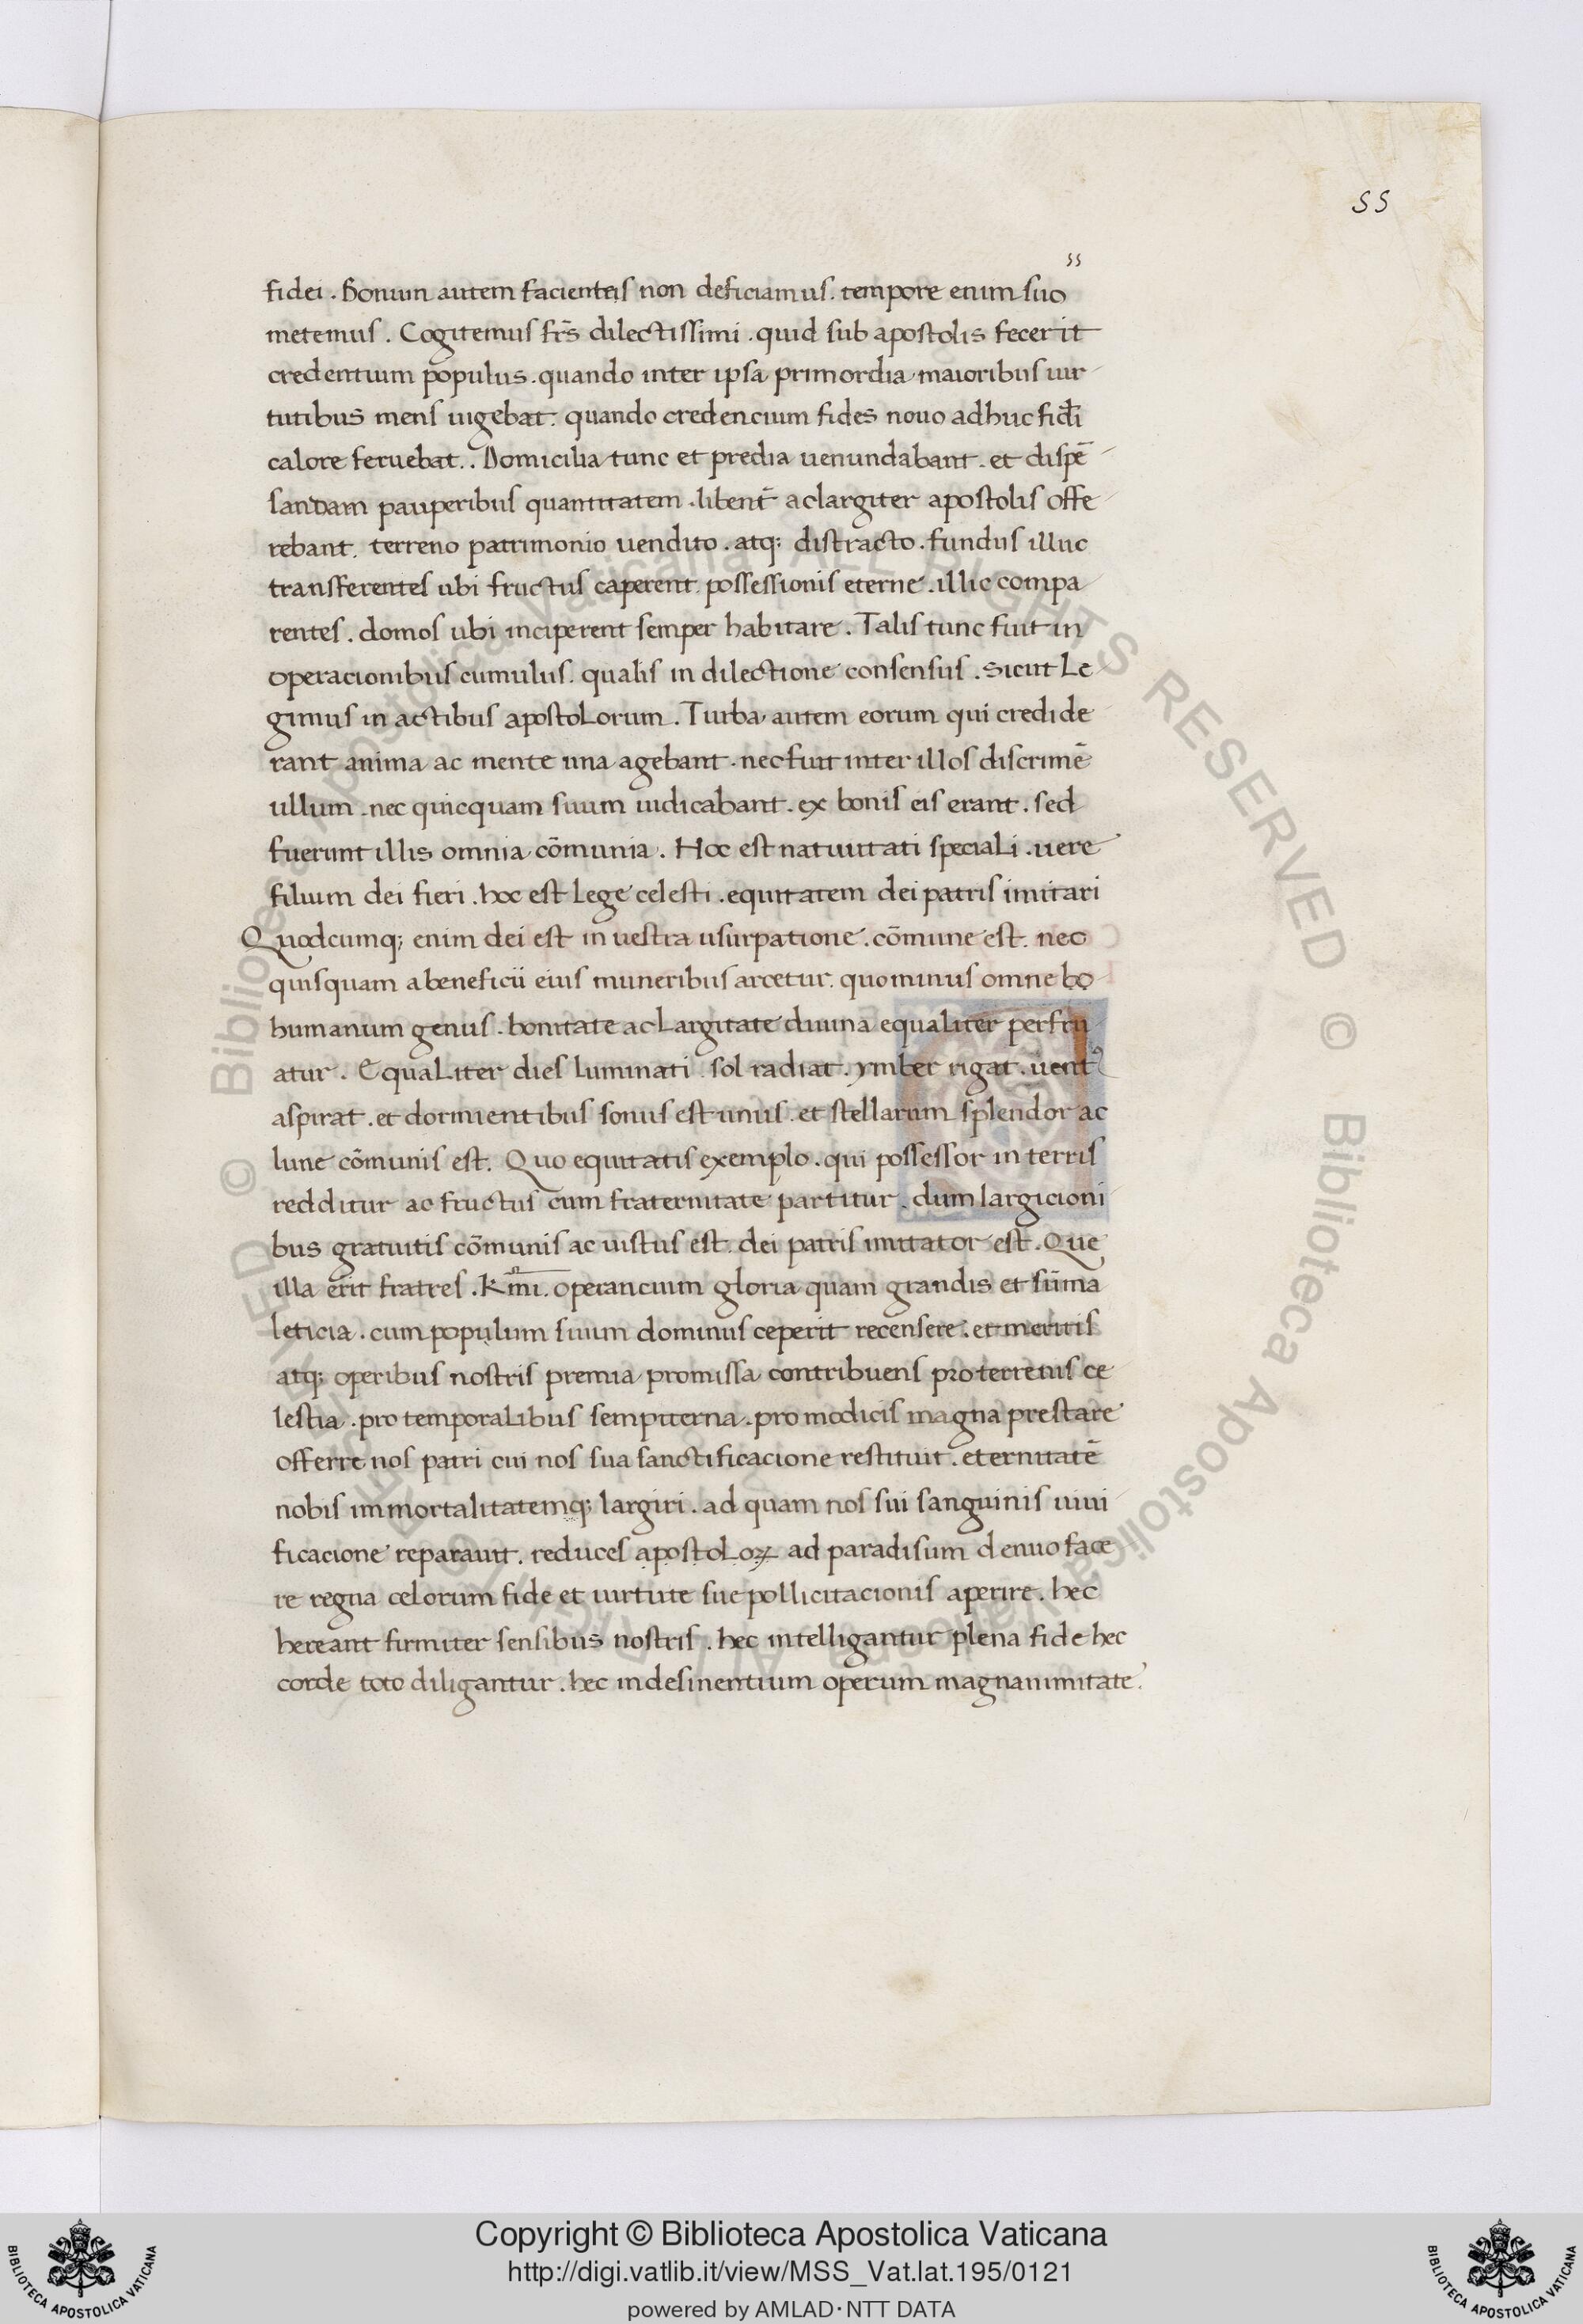 55
55
fidei . Bonum autem facienteis non deficiamus . tempore enim suo
metemus . Cogitemus fr̄s dilectissimi . quid sub apostolis fecerit
credentium populus . quando inter ipsa primordia maioribus uir
tutibus mens uigebat . quando credencium fides nouo adhuc fid̄i
calore feruebat . . Domicilia tunc et predia uenundabant . et dispē
sandam pauperibus quantitatem . libent̄ ac largiter apostolis offe
rebant . terreno patrimonio uendito . atq; distracto . fundus illuc
transferentes ubi fructus caperent possessionis eterne . illic compa
rentes . domos ubi inciperent semper habitare . Talis tunc fuit in
operacionibus cumulus . qualis in dilectione consensus . sicut Le
gimus in actibus apostolorum . Turba autem eorum qui credide
rant anima ac mente una agebant . nec fuit inter illos discrimē
ullum . nec quicquam suum iudicabant . ex bonis eis erant . sed
fuerunt illis omnia cōmunia . Hoc est natiuitati speciali . uere
filium dei fieri . hoc est lege celesti . equitatem dei patris imitari
Quodcumq; enim dei est in uestra usurpatione . cōmune est . nec
quisquam a beneficii eius muneribus arcetur . quominus omne bo
humanum genus . bonitate ac largitate diuina equaliter perfru
atur . Equaliter dies luminati . sol radiat . ymber rigat . uentꝰ
aspirat . et dormientibus sonus est unus . et stellarum splendor ac
lune cōmunis est . Quo equitatis exemplo . qui possessor in terris
redditur ac fructus cum fraternitate partitur . dum largicioni
bus gratuitis cōmunis ac uistus est . dei patris imitator est . Que
illa erit fratres . Kmi . operancium gloria quam grandis et sūma
leticia . cum populum suum dominus ceperit recensere . et meritis
atq; operibus nostris premia promissa contribuens pro terrenis ce
lestia . pro temporalibus sempiterna . pro modicis magna prestare
offerre nos patri cui nos sua sanctificacione restituit . eternitatē
nobis immortalitatemq; largiri . ad quam nos sui sanguinis uiui
ficacione reparauit . reduces apostoloꝝ ad paradisum denuo face
re regna celorum fide et uirtute sue pollicitacionis aperire . hec
hereant firmiter sensibus nostris . hec intelligantur plena fide hec
corde toto diligantur . hec indesinentium operum magnanimitate .
© Biblioteca Apostolica Vaticana ALL RIGHTS RESERVED
© Biblioteca Apostolica Vaticana ALL RIGHTS RESERVED
BIBLIOTECA APOSTOLICA VATICANA
Copyright © Biblioteca Apostolica Vaticana
http://digi.vatlib.it/view/MSS_Vat.lat.195/0121
powered by AMLAD·NTT DATA
BIBLIOTECA APOSTOLICA VATICANA